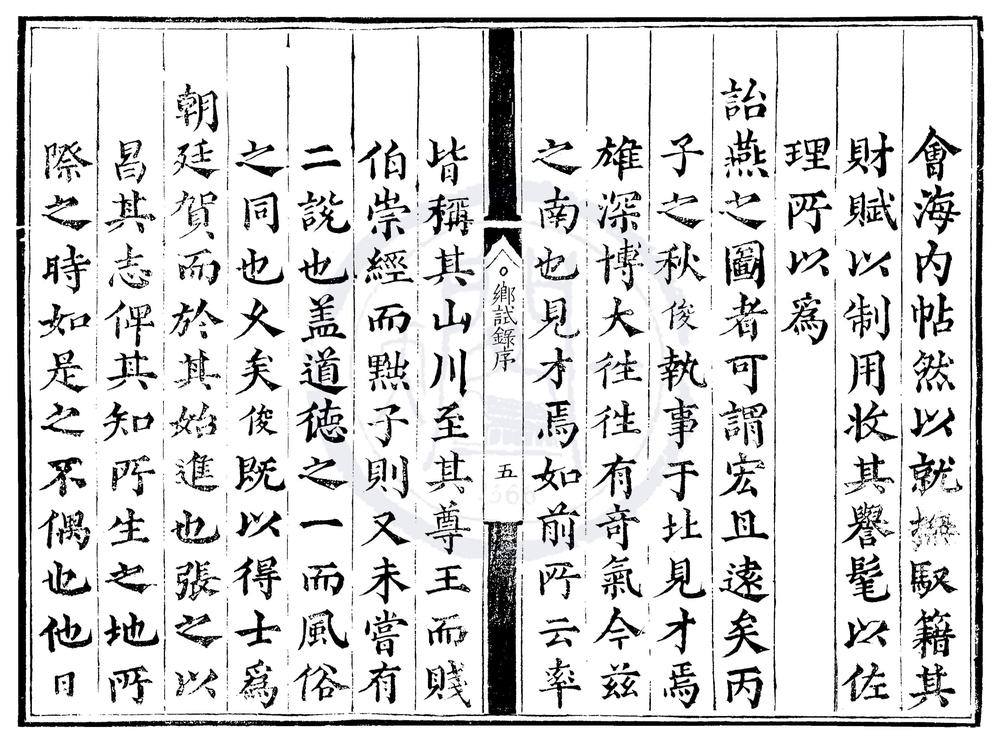 會海内帖然以就撫馭籍其
財賦以制用收其譽髦以佐
理所以爲
詒燕之圖者可謂宏且遠矣丙
子之秋俊執事于北見才焉
雄深博大徃徃有竒氣今兹
之南也見才焉如前所云率
鄉試錄序
五
皆稱其山川至其尊王而賤
伯崇經而黜子則又未嘗有
二說也盖道德之一而風俗
之同也久矣俊既以得士爲
朝廷賀而於其始進也張之以
昌其志俾其知所生之地所
際之時如是之不偶也他日